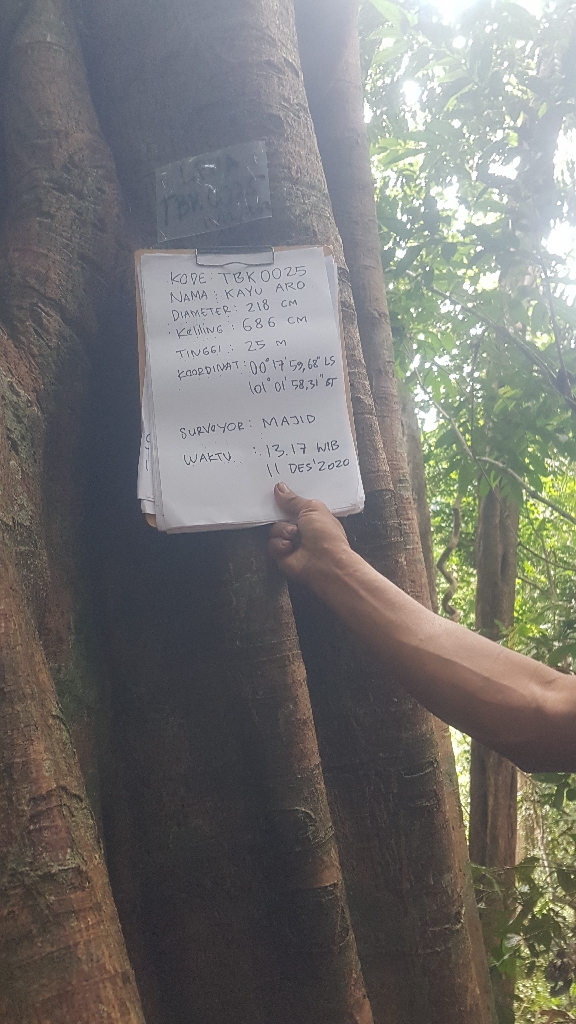 TBK0025
KODE: TBK0025
NAMA : KAYU ARO
DIAMETER: 218 CM
KELILING : 686 CM
TINGGI : 25 M
KOORDINAT: 00° 17' 59,68" LS
101° 01' 58,31" BT
SURVEYOR: MAJID
WAKTU : 13.17 WIB
11 DES'2020